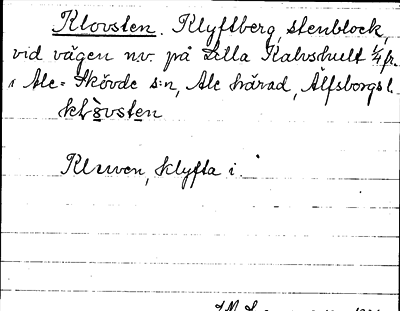 Klovsten. Klyftberg, stenblock,
vid vägen n.v. på Lilla Kalvshult 1/4 fr.
i Ale-Skövde s:n, Ale härad, Älfsborgs l.
klåvsten
klyfta i